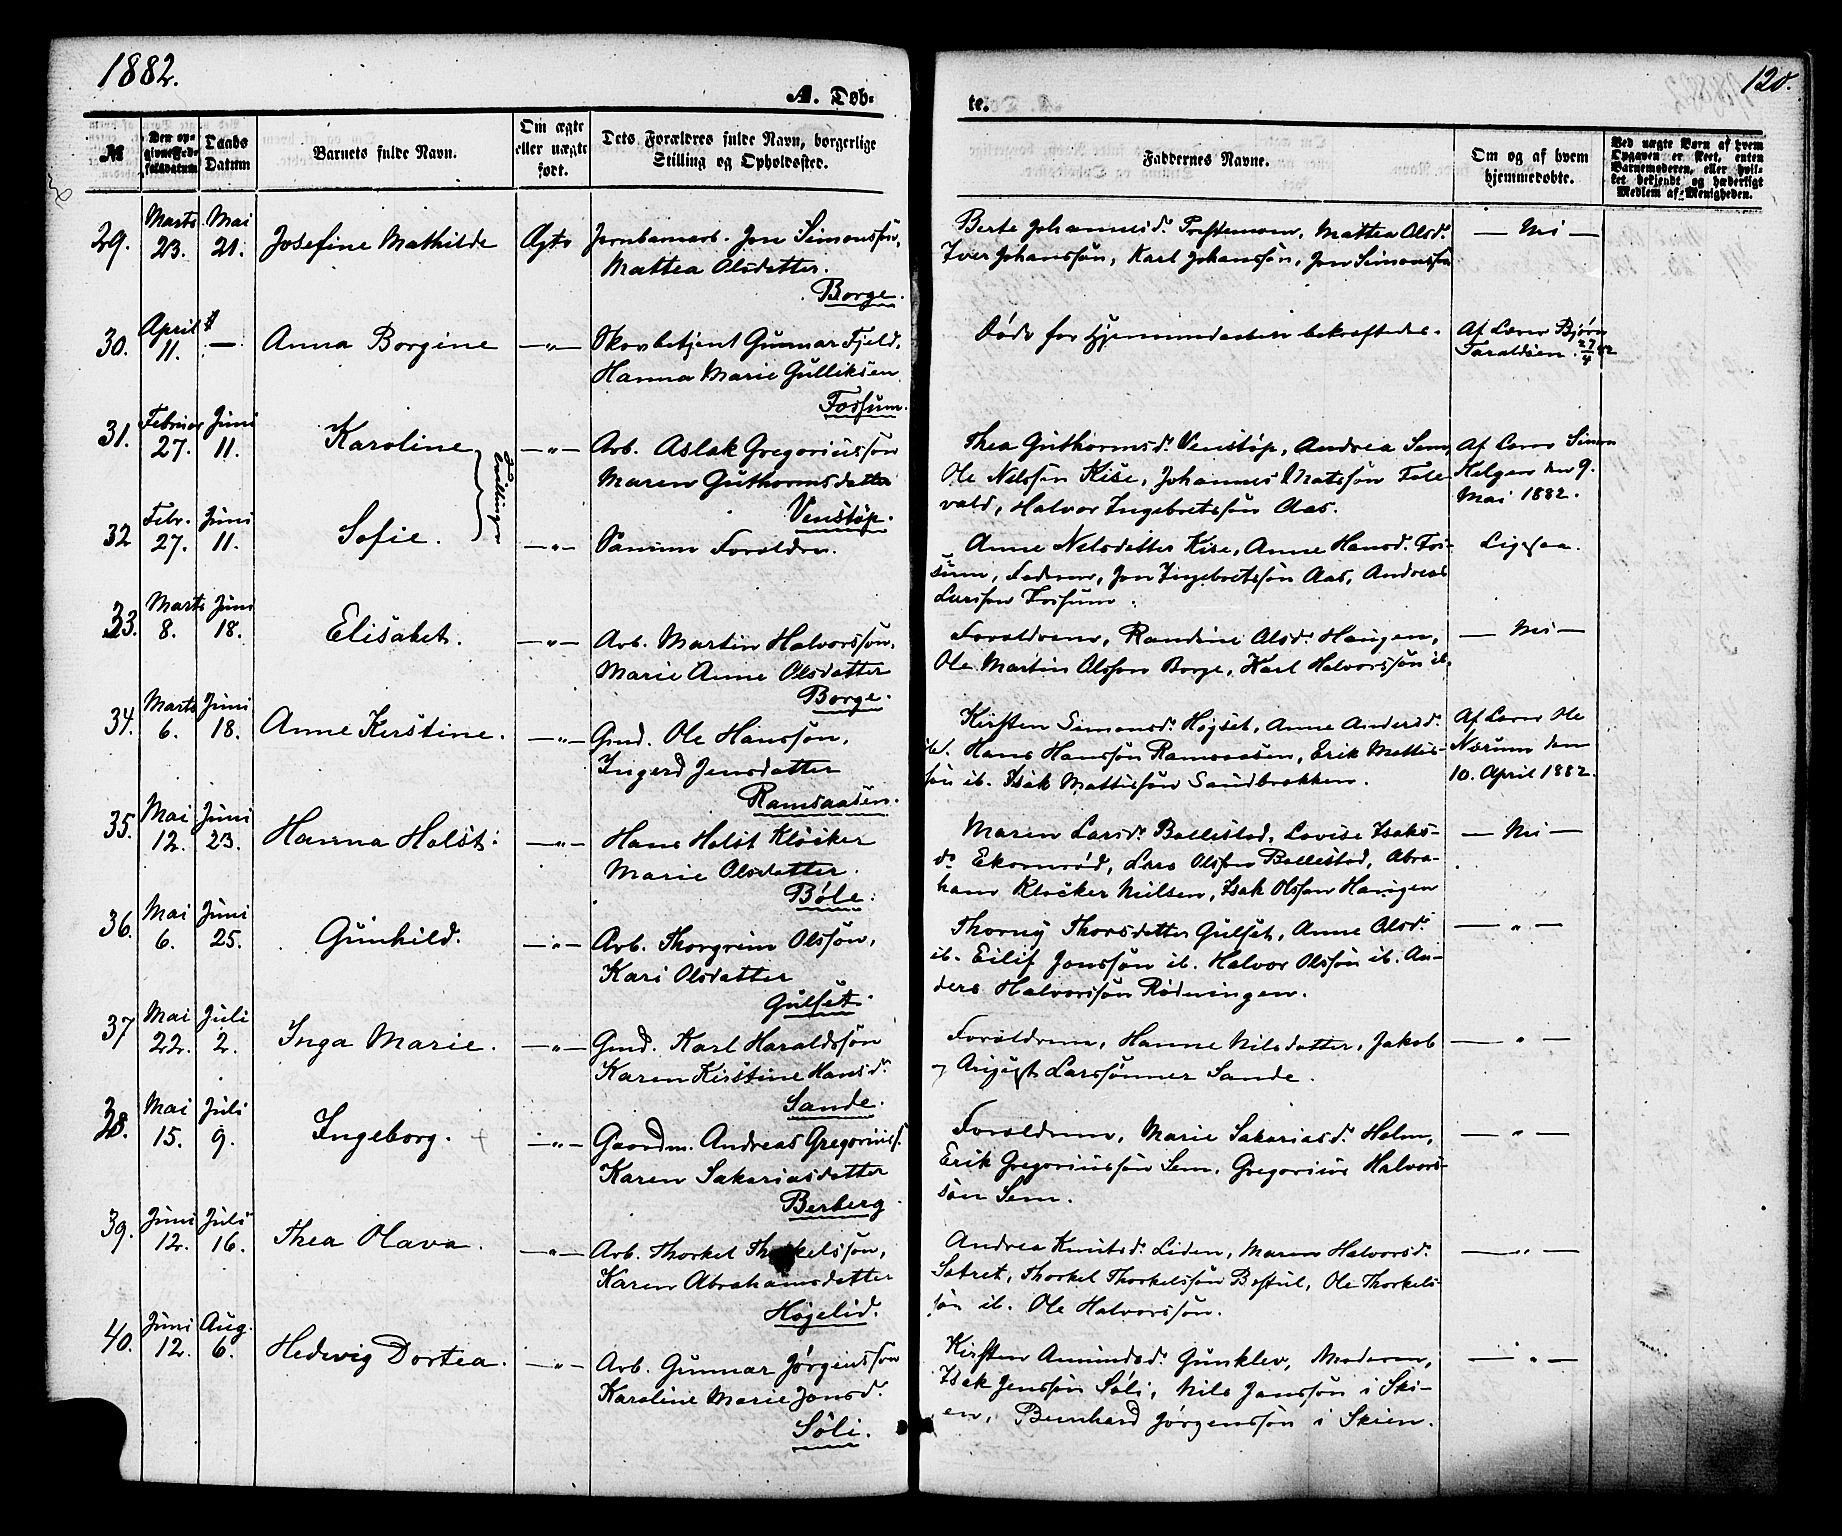 1882.
120.
A. Døb-
te.
№
Den opgivne Fødselsdatum
Daabs Datum
Barnets fulde Navn.
Om ægte eller uægte født.
Dets Forældres fulde Navn, borgerlige Stilling og Opholdssted.
Faddernes Navne.
Om og af hvem hjemmedøbt.
Ved uægte Børn af hvem Opgaven er skeet, enten Barnemoderen, eller hvilket bekjendt og hæderligt Medlem af Menigheden.
29. Marts 23. Mai 21. Josefine Mathilde Ægte Jernbanearb. Jon Simonssøn,
Mattea Olsdatter.
Borge.
Berte Johannesd. Mattea Olsd.
Iver Johanssøn, Karl Johanssøn, Jon Simonssøn
— Nei —
30. April 11. — Anna Borgine —„— Skovbetjent Gunnar Fjeld,
Hanna Marie Gulliksen
Fossum.
Døde før Hjemmedaaben bekræftedes.
Af Lærer Bjørn
Taraldsen 27/4 82
31. Februar 27. Juni 11. Karoline —„— Arb. Aslak Gregoriussøn
Maren Guthormsdatter
Venstøp.
Tvillinger
Thea Guthormsd. Venstøp, Andrea Sem,
Ole Nelssøn Kise, Johannes Matssøn Fale-
vald, Halvor Ingebretssøn Aas.
Af Lærer Simon
Helgen den 9.
Mai 1882.
32 Febr. 27. Juni 11. Sofie. —„— Samme Forældre.
Anne Nelsdatter Kise, Anne Hansd. Fos-
sum, Faderen, Jon Ingebretssøn Aas, Andreas
Larssøn Fossum.
Ligesaa.
33. Marts 8. Juni 18. Elisabet. —„— Arb. Martin Halvorssøn,
Marie Anne Olsdatter
Borge.
Forældrene, Randine Olsd. Haugen,
Ole Martin Olssøn Borge, Karl Halvorssøn ib.
— Nei —
34. Marts 6. Juni 18. Anne Kirstine. —„— Gmd. Ole Hanssøn,
Ingerd Jensdatter
Ramsaasen.
Kirsten Simonsd. Højset, Anne Andersd.
ib. Hans Hanssøn Ramsaasen, Erik Mattis-
søn ib. Isak Mattissøn Sandbrækken.
Af Lærer Ole
Nærum den
10. April 1882.
35. Mai 12. Juni 23. Hanna Holst. —„— Hans Holst Kløcker
Marie Olsdatter.
Bøle.
Maren Larsd. Ballestad, Lovise Isaks-
d. Ekornrød, Lars Olssøn Ballestad, Abra-
ham Kløcker Nielsen, Isak Olssøn Haugen
— Nei —
36. Mai 6. Juni 25. Gunhild. —„— Arb. Thorgrim Olssøn,
Kari Olsdatter
Gulset.
Thorny Thorsdatter Gulset, Anne Olsd.
ib. Eilif Jonssøn ib. Halvor Olssøn ib. An-
ders Halvorssøn Rødningen.
— „ —
37 Mai 22. Juli 2. Inga Marie. —„— Gmd. Karl Haraldssøn
Karen Kirstine Hansd.
Sande.
Forældrene, Hanne Nilsdatter, Jakob
og August Larssønner Sande.
— „ —
38. Mai 15. Juli 9. Ingeborg. —„— Gaardm. Andreas Gregoriuss.
Karen Sakariasdatter
Berberg
Forældrene, Marie Sakariasd. Holm,
Erik Gregoriussøn Sem, Gregorius Halvors-
søn Sem.
— „ —
39. Juni 12. Juli 16. Thea Olava. —„— Arb. Thorkel Thorkelssøn,
Karen Abrahamsdatter
Høgelid.
Andrea Knutsd. Liden, Maren Halvorsd.
Sætret, Thorkel Thorkelssøn Bestul, Ole Thorkels-
søn ib. Ole Halvorssøn.
— „ —
40. Juni 12. Aug. 6. Hedevig Dortea. —„— Arb. Gunnar Jørgenssøn
Karoline Marie Jonsd.
Søli.
Kirsten Amundsd. Gunklev, Moderen,
Isak Jenssøn Søli, Nils Janssøn i Ski-
en, Bernhard Jørgenssøn i Skien.
— „ —